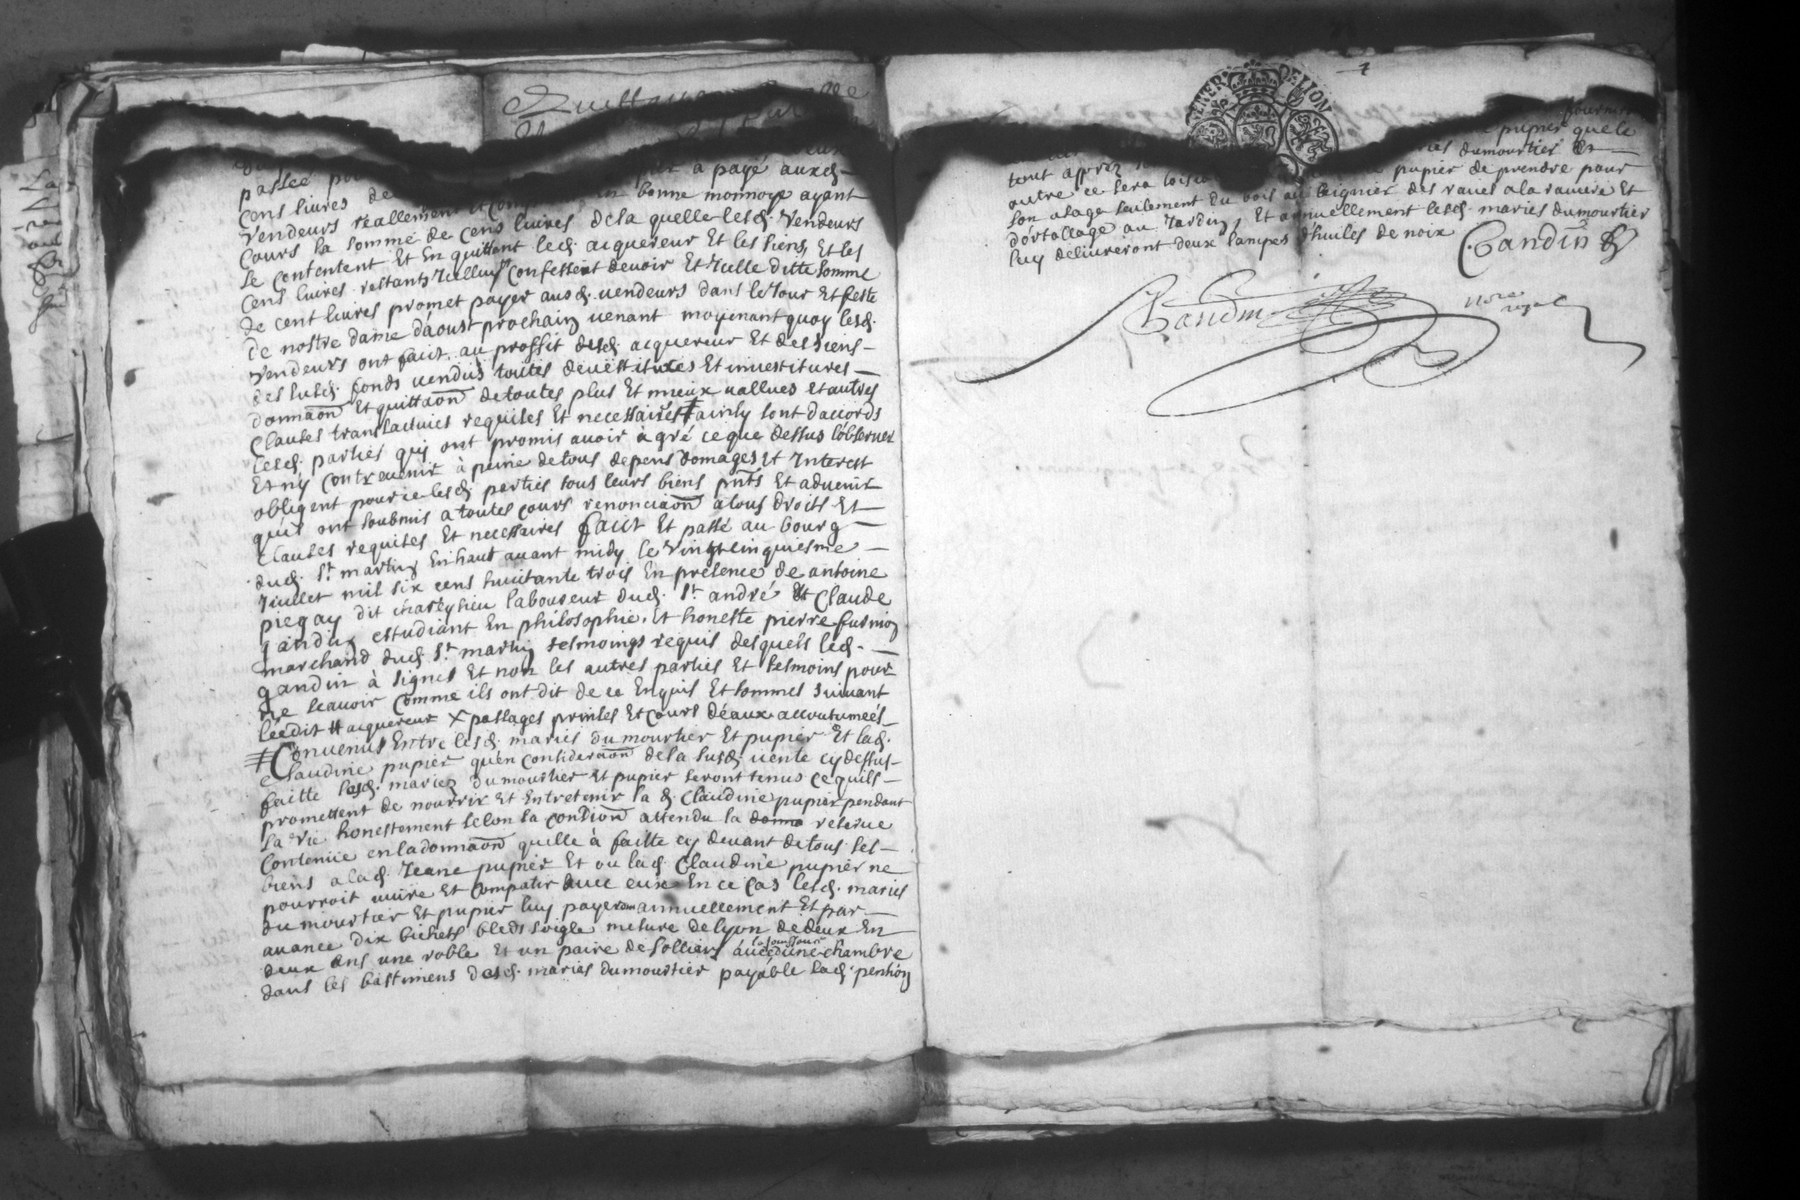 Quittance
passée
cens livres de a payé auxd.
vendeurs reallement bonne monnoye ayant
cours la somme de cens livres de la quelle lesd. vendeurs
se contentent Et En quittant led. acquereur Et les siens, Et les
cens livres restants Icelluy confessent devoir Et Icelle ditte somme
de cent livres promet payer ausd. vendeurs dans le Jour Et feste
de nostre dame d'aoust prochain venant moyenant quoy lesd.
vendeurs ont faict au proffit dud. acquereur Et des siens
des susd. fonds vendus toutes devestitures Et investitures
donnaon Et quittaon de toutes plus Et mieux vallues Et autres
Clauses translatives requises Et necessaires # ainsy sont d'accords
lesd. parties quy ont promis avoir à gré ce que dessus l'observer
Et n'y contrevenir à peine de tous depens domages Et Interest
obligent pour ce lesd. parties tous leurs biens pnts Et advenir
quils ont soubmis a toutes cours renonciaon à tous droits Et
Clauses requises Et necessaires faict Et passé au bourg
dud. St. martin En haut avant midy le vingt cinquiesme
Juillet mil six cens huictante trois En presence de antoine
piegay dit laboureur dud. St. andré Et Claude
gandin estudiant En philosophie, Et honeste pierre
marchand dud. St. martin tesmoings requis desquels led.
gandin à signé Et non les autres parties Et tesmoins pour
ne scavoir comme ils ont dit de ce Enquis Et sommés suivant
lédit # acquereur X passages prinses Et cours d'eaux accoutumées
# Convenus Entre lesd. mariés dumourtier Et pupier Et lad.
Claudine pupier qu'en consideraon de la susd. vente cy dessus
faitte lesd. mariez dumourtier Et pupier seront tenus ce quils
promettent de nourrir Et Entretenir la d. Claudine pupier pendant
sa vie honestement selon sa condion attendu la reserve
Contenüe en la donnaon quelle à faitte cy devant de tous ses
biens a lad. Jeane pupier Et ou lad. Claudine pupier ne
pourroit vivre Et compatir avec eux En ce cas lesd. mariés
dumourtier Et pupier luy payeront annuellement Et par
avance dix bichets bleds soigle mesure de lyon de deux En
deux ans une robbe Et un paire de solliers avec d'une chambre
dans les bastimens desd. mariés dumourtier payable lad. pention
GENER DE LION
pupier que le
tout apprez mariés dumourtier Et
outre ce sera loisible pupier de prendre pour
son usage seulement du bois au des raves a la raviere Et
d'ortollage au Jardin, Et annuellement lesd. mariés dumourtier
luy delivreront deux lampes d'huiles de noix Gandin
Gandin nore
royal